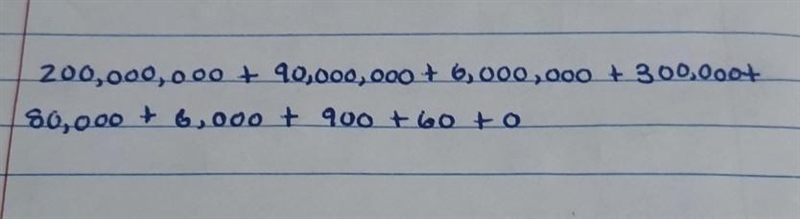 200,000,000 + 90,000,000 + 6,000,000 + 300,000+
80,000 + 6,000 + 900 + 60 + 0